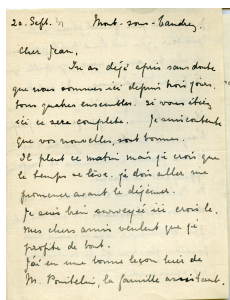 20. Sept. Mont-sous-Vaudrey.
Cher Jean,
Tu as déjà appris sans doute
que nous sommes ici depuis trois jours,
tous quatre ensembles. si vous étiez
ici ce sera complète. Je suis contente
que vos nouvelles sont bonnes.
Il pleut ce matin mais je crois que
le temps se lève. je dois aller me
promener avant le déjeuner.
Je suis bien ici, crois-le.
Mes chers amis veulent que je
profite de tout.
J'ai eu une bonne leçon hier de
M. la famille assistant.